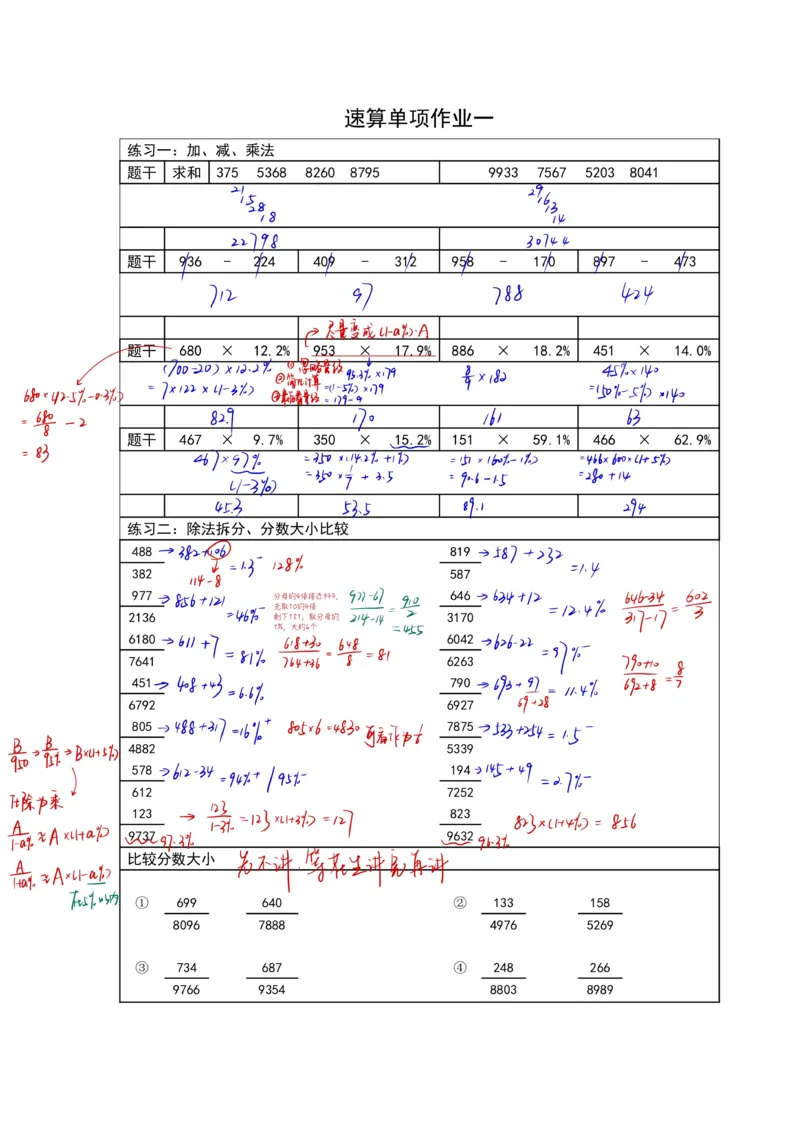 速算单项作业一
练习一：加、减、乘法
题干 求和 375 5368 8260 8795 9933 7567 5203 8041
21 29
15 16
28 13
18 14
22798 30744
题干 936 - 224 409 - 312 958 - 170 897 - 473
712 97 788 424
尽量变成(1-a%)·A
题干 680 × 12.2% 953 × 17.9% 886 × 18.2% 451 × 14.0%
(700-20)×12.2%
=7×122×(1-3%)
95.3%×179
=(1-5%)×179
=179-9
8/9×182
45%×140
=(50%-5%)×140
680×(12.5%-0.3%)
=680/8-2
=83
82.9 170 161 63
题干 467 × 9.7% 350 × 15.2% 151 × 59.1% 466 × 62.9%
467×97%
(1-3%)
=350×(14.2%+1%)
=350×1/7+3.5
=151×(60%-1%)
=90.6-1.5
=466×600×(1+5%)
=280+14
45.3 53.5 89.1 294
练习二：除法拆分、分数大小比较
488 →382+106 =1.3⁻ 128% 819 →587+232 =1.4
382 114-8 587
977 →856+121 =46%⁻ 646 →634+12 =12.4%
2136 3170
分母的4倍接近977，
先取10的4倍
剩下121，取分母的
1%，大约6个
977-67/214-14=910/2
=455
646-34/317-17=602/3
6180 →611+7 =81% 618+30/764+36=648/8=81 6042 →626-22 =97%⁻
7641 6263
790+10/692+8=8/7
451 →408+43 =6.6% 790 →693+97 =11.4%
6792 6927 69+28
805 →488+317 =16%⁺ 805×6=4830 7875 →533+254 =1.5⁻
4882 5339
578 →612-34 =94%⁺/95%⁻ 194 →145+49 =2.7%⁻
612 7252
123 →123/1-3%=123×(1+3%)=127 823 823×(1+4%)=856
9737 97.3% 9632 96.3%
B/950→B/95%→B×(1+5%)
化除为乘
A/1-a%≈A×(1+a%)
A/1+a%≈A×(1-a%)
在5%以内
比较分数大小 先不讲,等在生讲完再讲
① 699 640 ② 133 158
8096 7888 4976 5269
③ 734 687 ④ 248 266
9766 9354 8803 8989